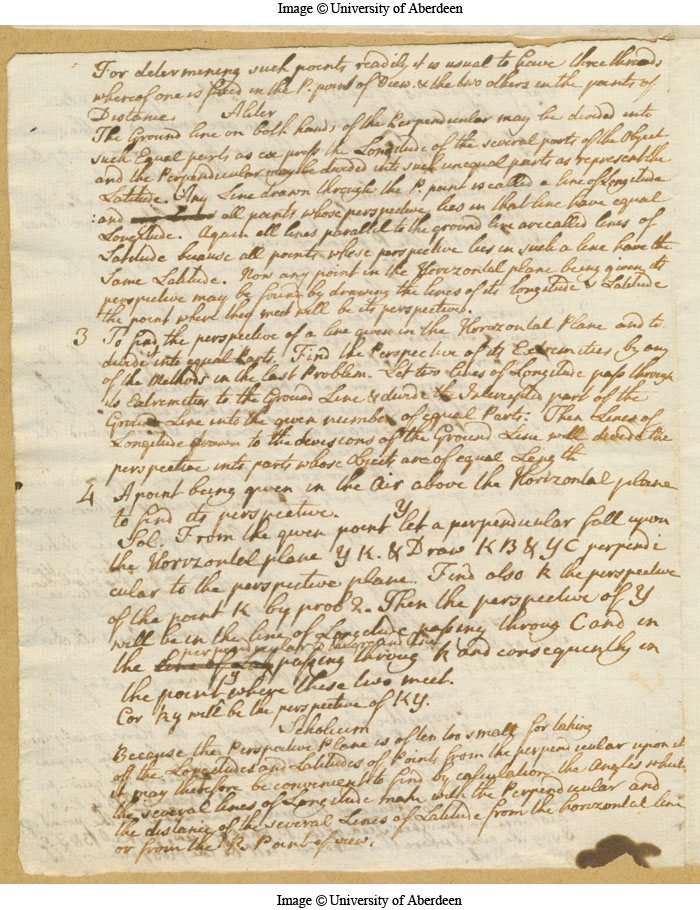 Image © University of Aberdeen
For determining such points readily it is usual to have three threads
whereof one is fixed in the P. point of View. & the two others in the points of
Distance. Aliter
The Ground line on both hands of the Perpendicular may be divided into
such Equal parts as express the Longitude of the several parts of the Object
and the Perpendicular may be divided into such unequal parts as represent the
Latitude. Any Line drawn through the P. point is called a line of Longitude
and all points whose perspective lies in that line have equal
Longitude. Again all lines parallel to the ground line are called lines of
Latitude because all points whose perspective lies in such a line have the
Same Latitude. Now any point in the Horizontal plane being given its
perspective may be found by drawing the lines of its longitude & Latitude
the point where they meet will be its perspective.
3 To find the perspective of a line given in the Horizontal Plane and to
divide into equal Parts. Find the Perspective of its Extremities by any
of the Methods in the last Problem. Let two lines of Longitude pass through
its Extremities to the Ground Line & divide the Intercepted part of the
Ground Line into the given number of equal Parts. Then Lines of
Longitude drawn to the devisions of the Ground Line will divide the
perspective into parts whose Objects are of equal Length
4 A point being given in the Air above the Horizontal plane
to find its perspective.
Sol. From the given point Y let a perpendicular fall upon
the Horizontal plane YK. & Draw KB & YC perpendi
cular to the perspective plane. Find also k the perspective
of the point K by prob 2. Then the perspective of Y
will be in the line of Longitude passing throug C and in
the perpendicular to the ground line passing throug k and consequently in
the point y where these two meet.
Cor ky will be the perspective of KY.
Scholium
Because the Perspective Plane is often too small for taking
off the Longitudes and Latitudes of Points from the perpendicular upon it
it may therefore be convenient to find by calculation the Angles which
the several lines of Longitude make with the Perpendicular and
the distance of the several Lines of Latitude from the horizontal line
or from the P. Point of view.
Image © University of Aberdeen